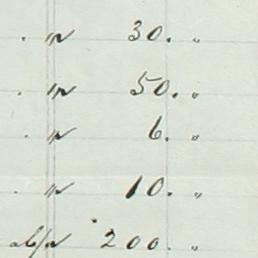 . " 30. "
. " 50. "
. " 6. "
. " 10. "
200. "